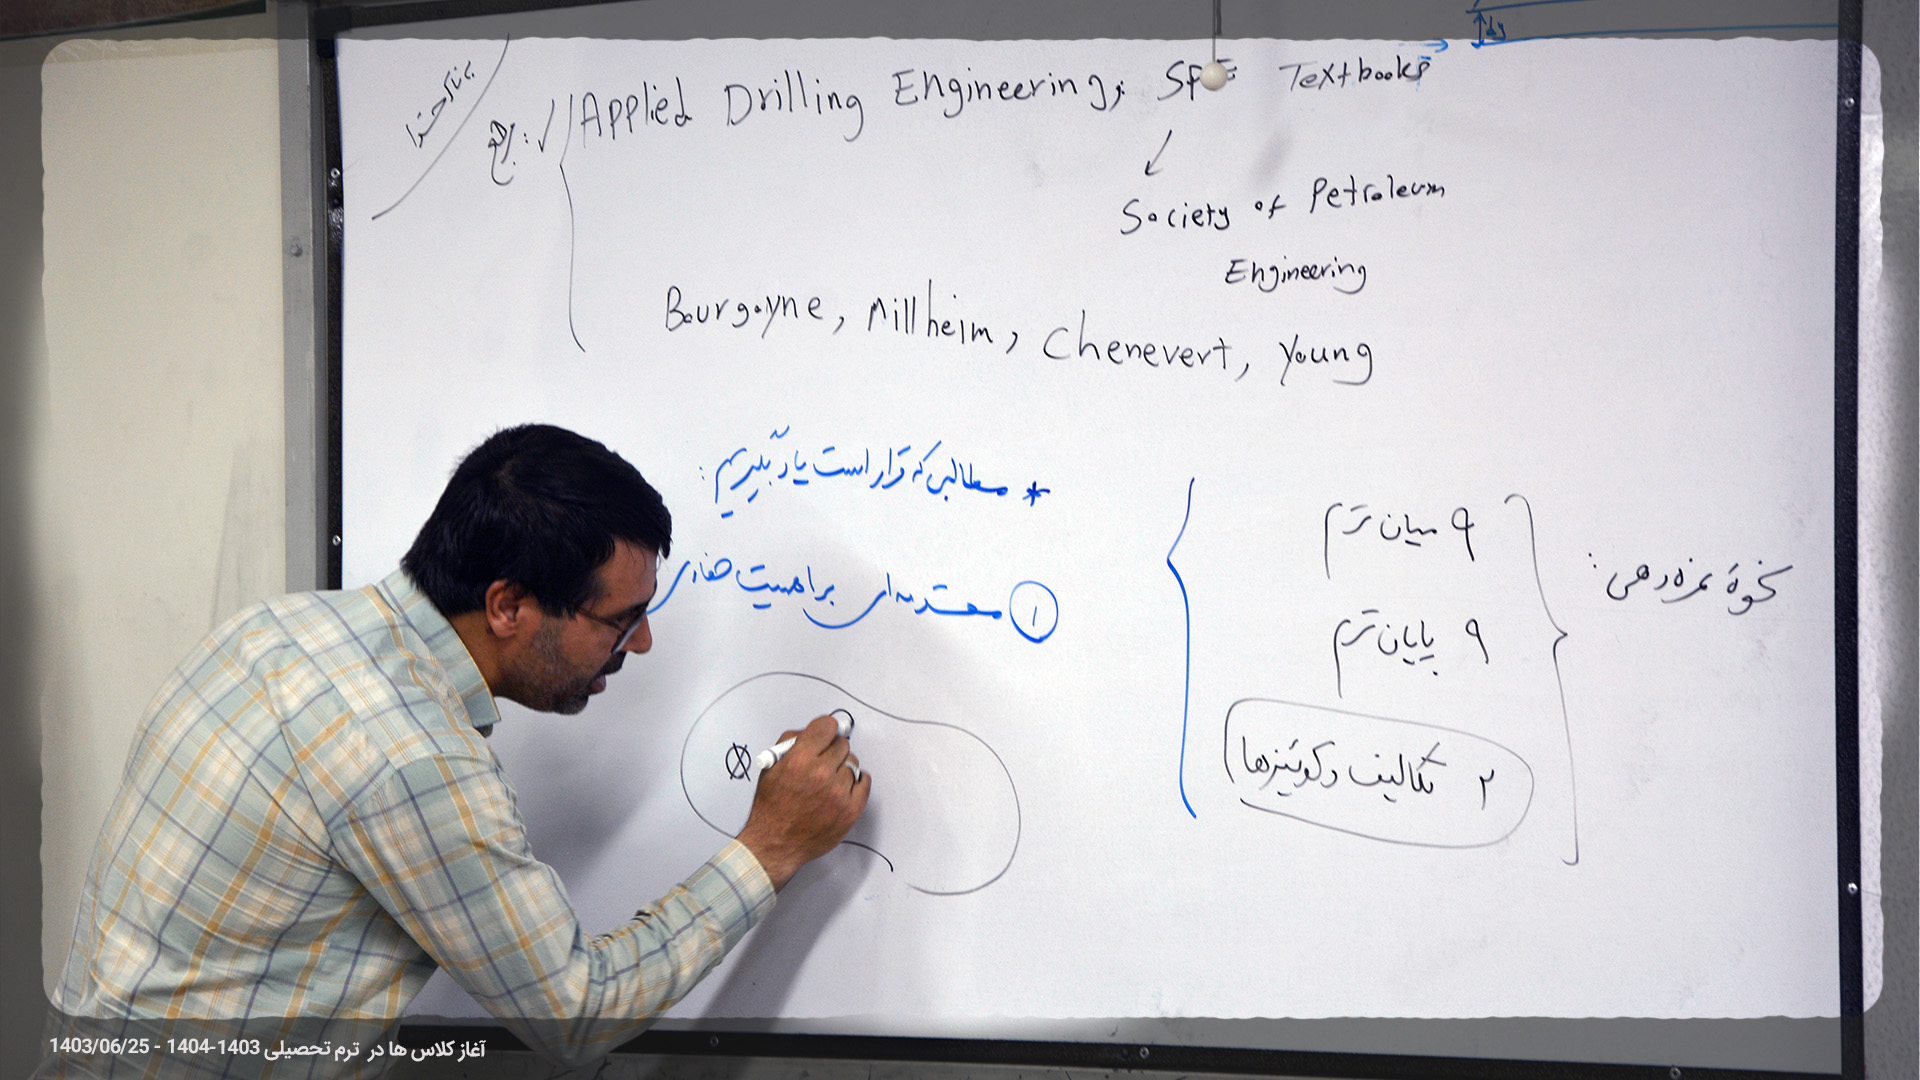 بنام خدا
مرجع: Applied Drilling Engineering; SPE Textbooks
Society of Petroleum
Engineering
Bourgoyne, Millheim, Chenevert, Young
* مطالبی که قرار است یاد بگیریم:
① مقدمه‌ای بر اهمیت حفاری
نحوهٔ نمره‌دهی:
۹ میان ترم
۹ پایان ترم
۲ تکالیف و کوئیزها
dy
آغاز کلاس ها در ترم تحصیلی 1403-1404 - 1403/06/25